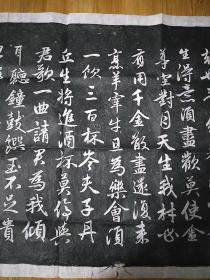 生得意須盡歡莫使金
尊空對月天生我材必
有用千金散盡還復来
烹羊宰牛且為樂會須
一飲三百杯岑夫子丹
丘生將進酒杯莫停與
君歌一曲請君為我傾
耳聽鐘鼓饌玉不足貴